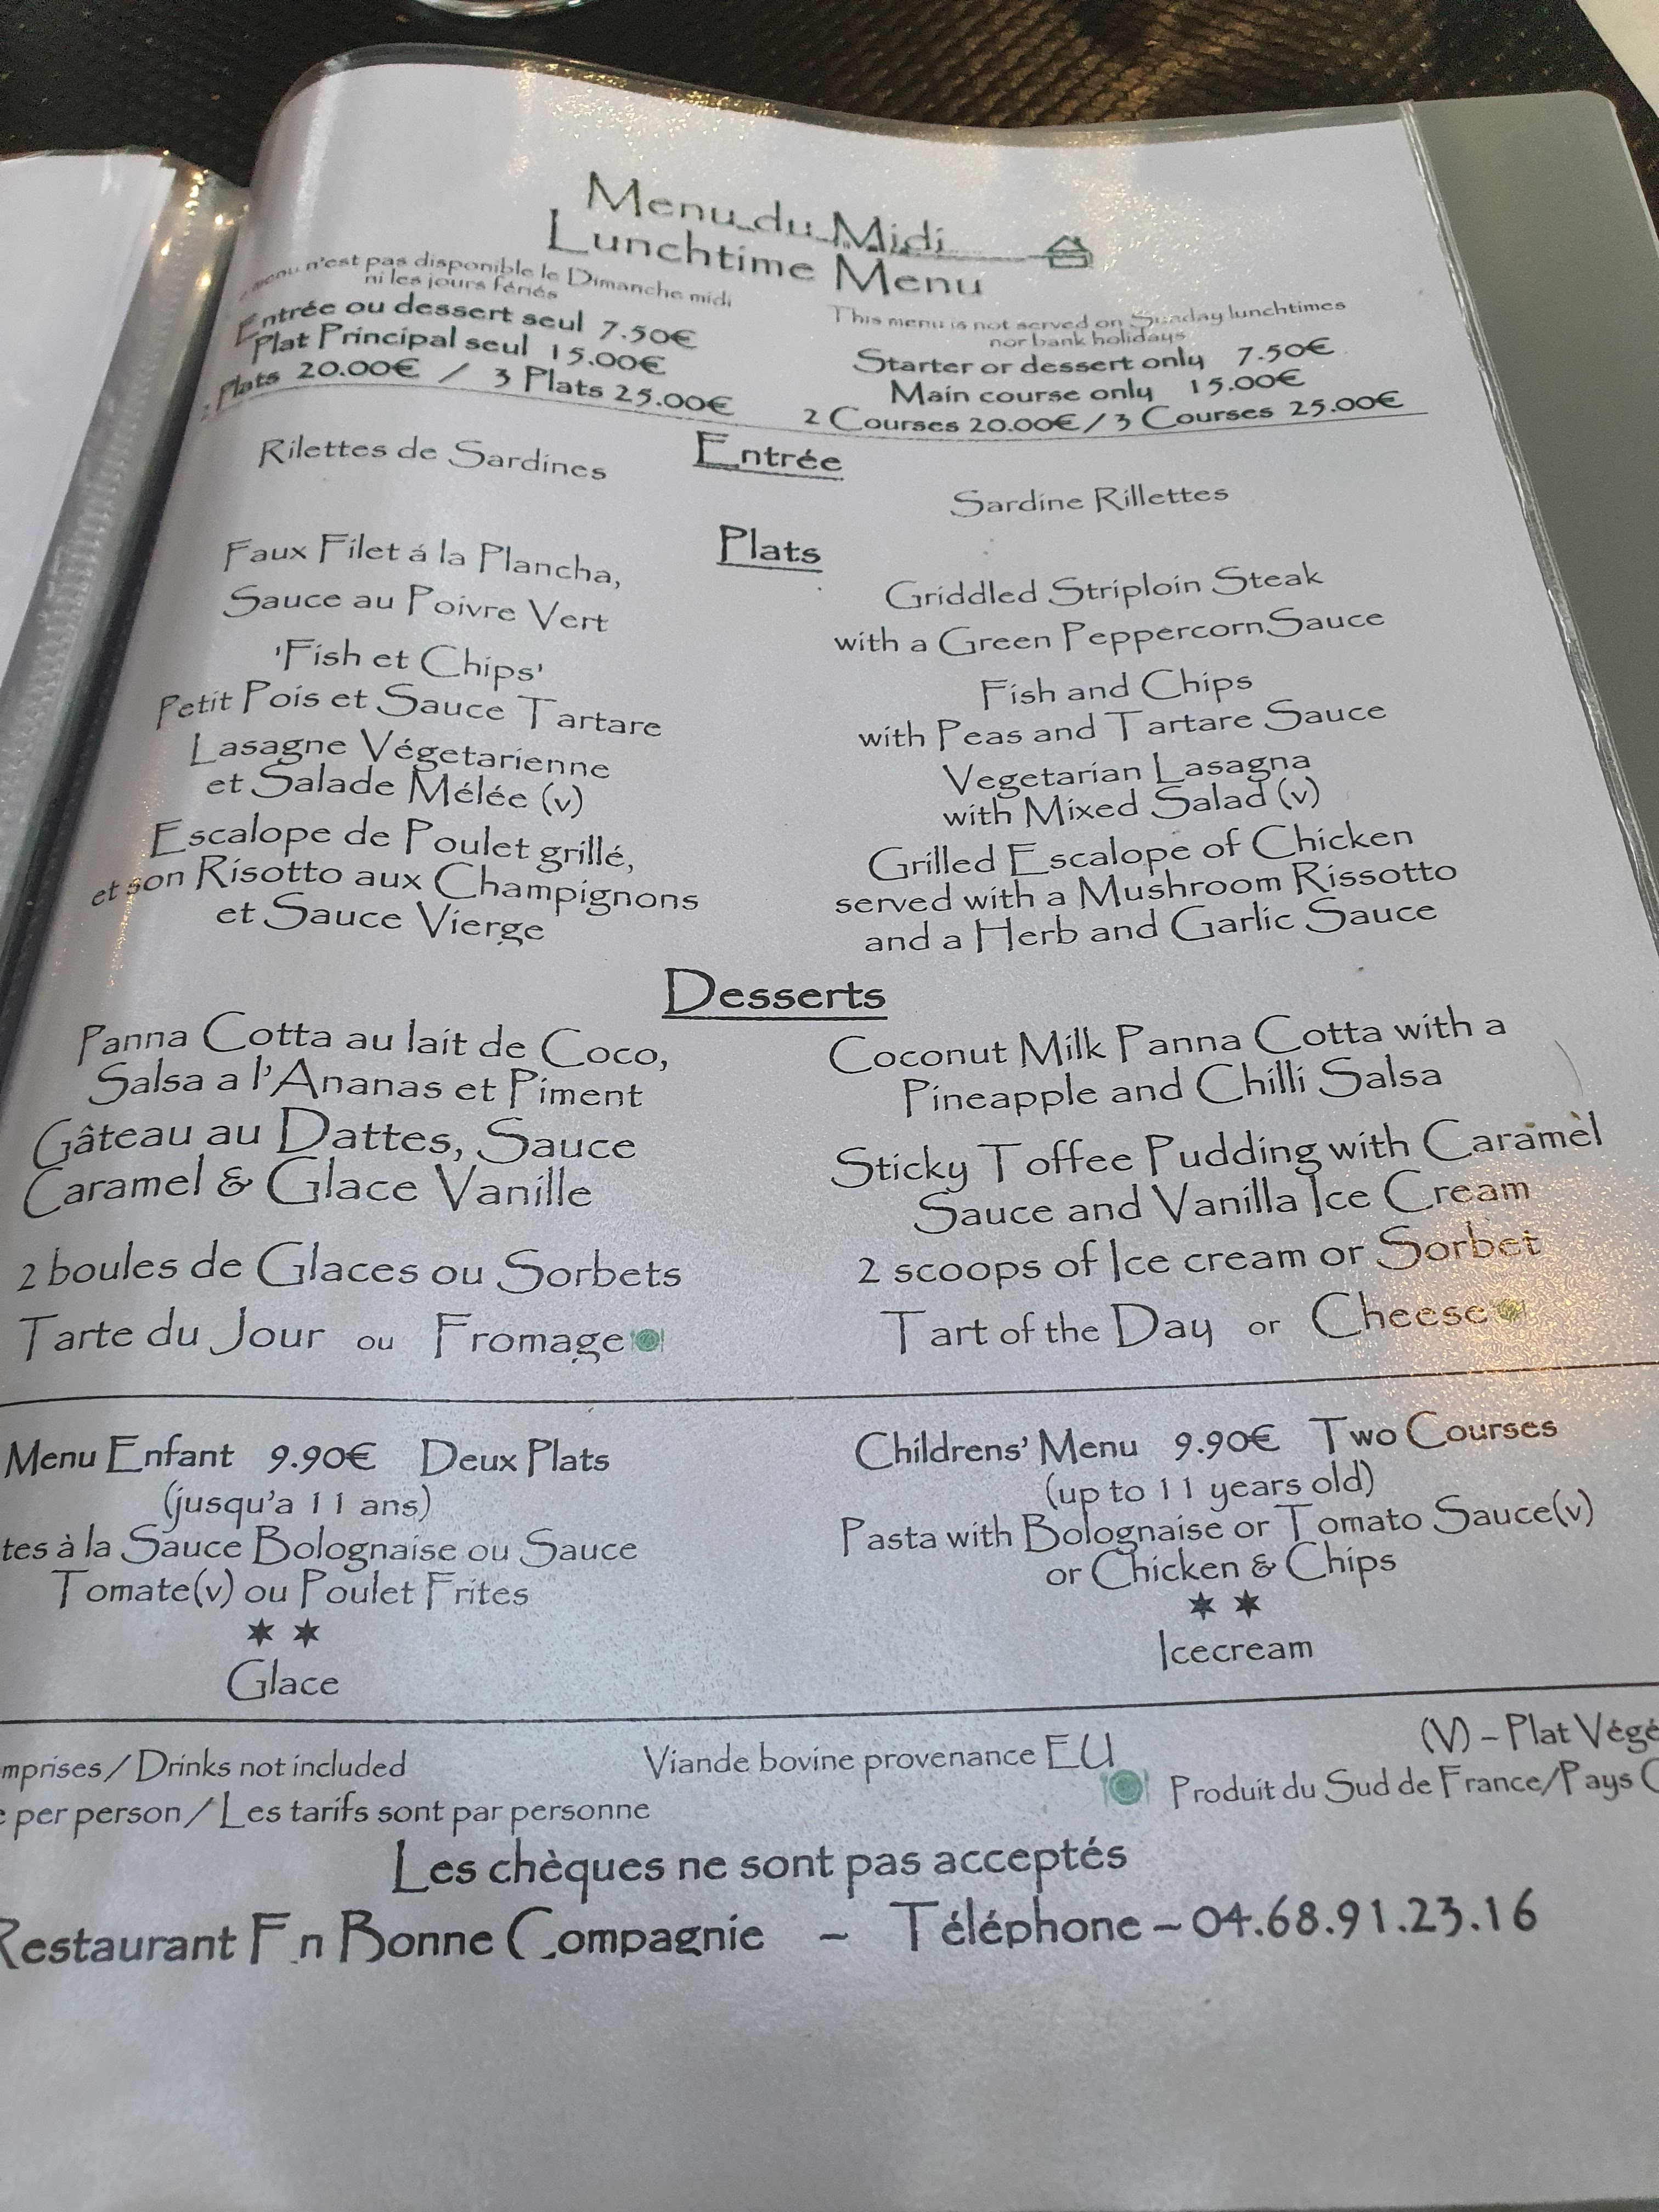 Menu du Midi
Lunchtime Menu
menu n'est pas disponible le Dimanche midi
ni les jours fériés
Entrée ou dessert seul 7.50€
Plat Principal seul 15.00€
2 Plats 20.00€ / 3 Plats 25.00€
This menu is not served on Sunday lunchtimes
nor bank holidays
Starter or dessert only 7.50€
Main course only 15.00€
2 Courses 20.00€ / 3 Courses 25.00€
Entrée
Rilettes de Sardines
Sardine Rillettes
Plats
Faux Filet á la Plancha,
Sauce au Poivre Vert
'Fish et Chips'
Petit Pois et Sauce Tartare
Lasagne Végetarienne
et Salade Mélée (v)
Escalope de Poulet grillé,
et son Risotto aux Champignons
et Sauce Vierge
Griddled Striploin Steak
with a Green PeppercornSauce
Fish and Chips
with Peas and Tartare Sauce
Vegetarian Lasagna
with Mixed Salad (v)
Grilled Escalope of Chicken
served with a Mushroom Rissotto
and a Herb and Garlic Sauce
Desserts
Panna Cotta au lait de Coco,
Salsa a l'Ananas et Piment
Gâteau au Dattes, Sauce
Caramel & Glace Vanille
2 boules de Glaces ou Sorbets
Tarte du Jour ou Fromage
Coconut Milk Panna Cotta with a
Pineapple and Chilli Salsa
Sticky Toffee Pudding with Caramèl
Sauce and Vanilla Ice Cream
2 scoops of Ice cream or Sorbet
Tart of the Day or Cheese
Menu Enfant 9.90€ Deux Plats
(jusqu'a 11 ans)
tes à la Sauce Bolognaise ou Sauce
Tomate(v) ou Poulet Frites
★ ★
Glace
Childrens' Menu 9.90€ Two Courses
(up to 11 years old)
Pasta with Bolognaise or Tomato Sauce(v)
or Chicken & Chips
★ ★
Icecream
mprises / Drinks not included
Viande bovine provenance EU
(V) – Plat Végé
e per person / Les tarifs sont par personne
Produit du Sud de France/Pays
Les chèques ne sont pas acceptés
Restaurant En Bonne Compagnie – Téléphone – 04.68.91.23.16